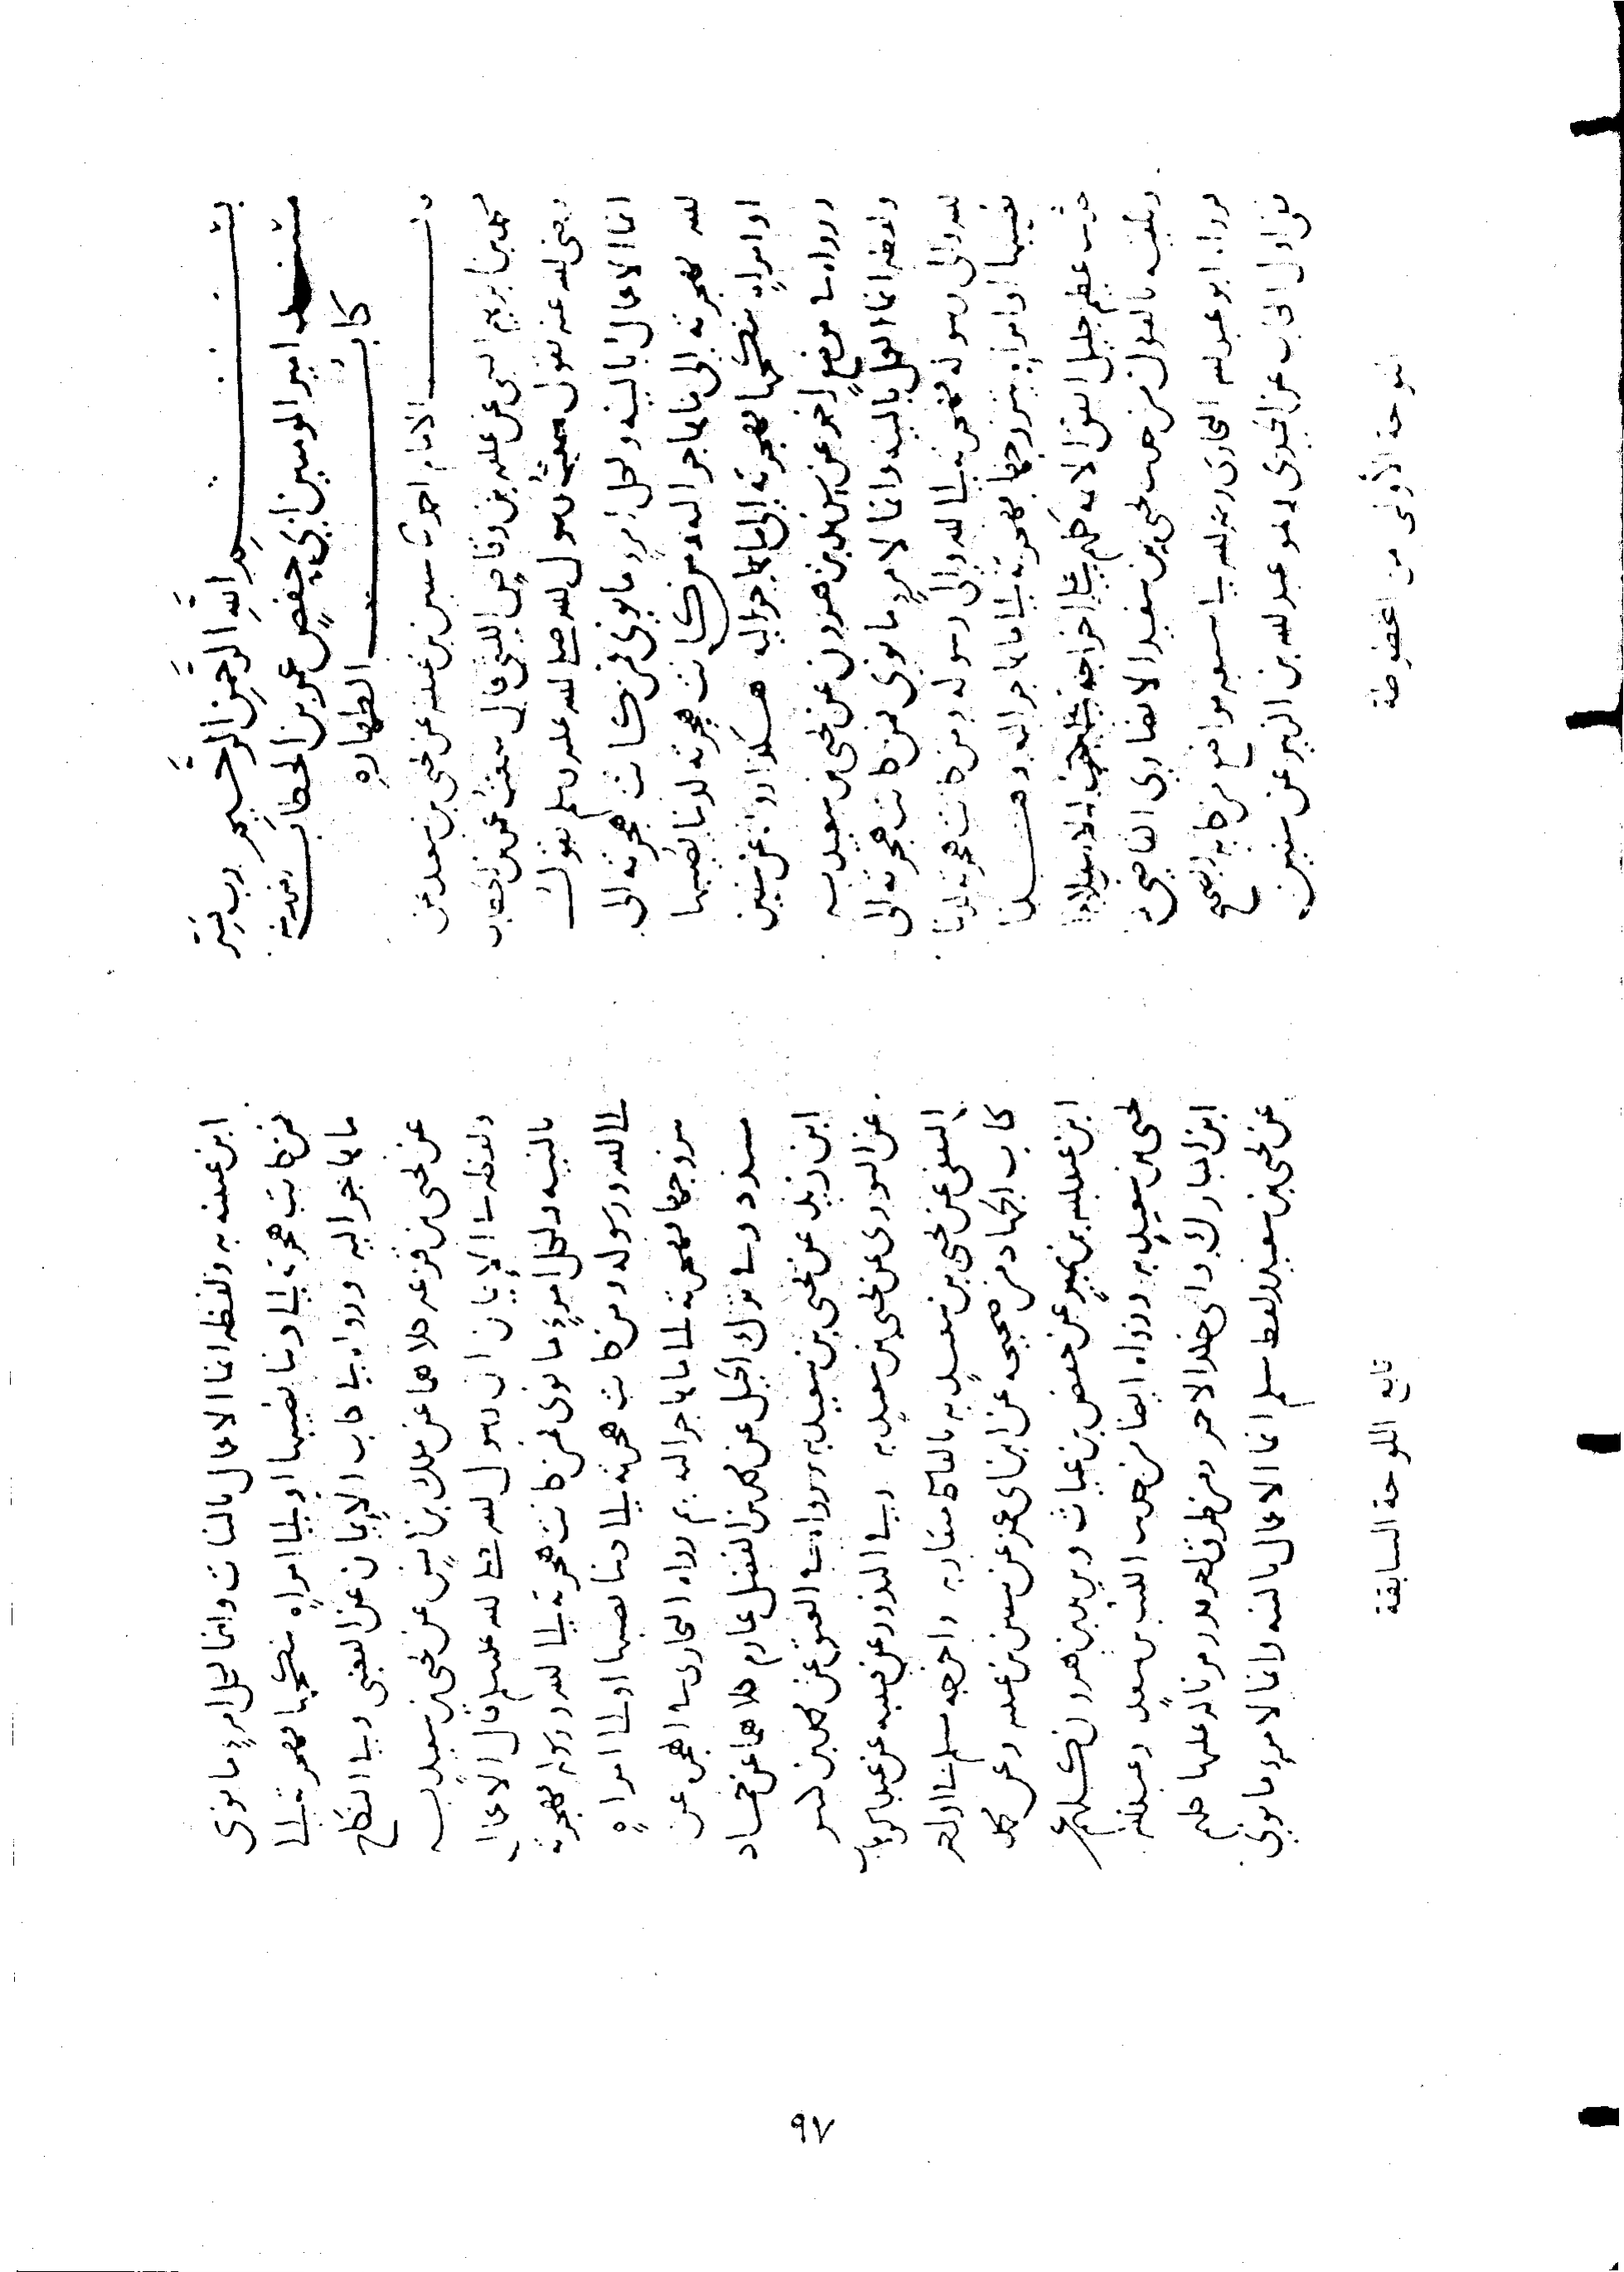 بسم الله الرحمن الرحيم رب يسر
مسند امير المومنين ابي حفص عمر بن الخطاب رضي الله عنه
كتاب الطهارة
قال الامام احمد سا سفين بن عيينه عن يحيى بن سعيد عن
محمد بن ابرهيم التيمي عن علقمه بن وقاص الليثي قال سمعت عمر بن الخطاب
رضي الله عنه يقول سمعت رسول الله صلى الله عليه وسلم يقول
انما الاعمال بالنيه ولكل امرئ ما نوى فمن كانت هجرته الى
الله فهجرته الى ما هاجر اليه ومن كانت هجرته لدنيا يصيبها
او امراه ينكحها فهجرته الى ما هاجر اليه هكذا رواه عن سفين
ورواه في موضع اخر عن يزيد بن هرون عن يحيى بن سعيد به
ولفظه انما العمل بالنيه وانما لامرئ ما نوى فمن كانت هجرته الى
الله والى رسوله فهجرته الى الله والى رسوله ومن كانت هجرته لدنيا
يصيبها او امراه يتزوجها فهجرته الى ما هاجر اليه وهذا
حديث عظيم جليل اتفق الائمه كلهم على اخراجه
وتلقيه بالقبول من حديث يحيى بن سعيد الانصاري القاضي
فرواه ابو عبد الله البخاري رحمه الله في سبعه مواضع من كتابه الصحيح
في اول الكتاب عن الحميدي وهو عبد الله بن الزبير عن سفين
اللوحة الأولى من المخطوطة
ابن عيينه به ولفظه انما الاعمال بالنيات وانما لكل امرئ ما نوى
فمن كانت هجرته الى دنيا يصيبها او الى امراه ينكحها فهجرته الى
ما هاجر اليه ورواه في كتاب الإيمان عن القعنبي وفي النكاح
عن يحيى بن قزعه كلاهما عن ملك بن انس عن يحيى بن سعيد به
ولفظه في الإيمان ان رسول الله صلى الله عليه وسلم قال الاعمال
بالنيه ولكل امرئ ما نوى فمن كانت هجرته الى الله ورسوله فهجرته
الى الله ورسوله ومن كانت هجرته الى دنيا يصيبها او الى امراه
يتزوجها فهجرته الى ما هاجر اليه ثم رواه البخاري في الهجره عن
مسدد وفي ترك الحيل عن محمد بن الفضل عارم كلاهما عن حماد
ابن زيد عن يحيى بن سعيد به ورواه في العتق عن محمد بن كثير
عن الثوري عن يحيى بن سعيد به وفي النذور عن قتيبه عن عبد الوهاب
الثقفي عن يحيى بن سعيد به بالفاظ متقاربه واخرجه مسلم في اواخر
كتاب الجهاد من صحيحه عن ابن ابي عمر عن سفين بن عيينه وعن محمد
ابن عبد الله بن نمير عن حفص بن غياث ويزيد بن هرون كلهم عن
يحيى بن سعيد به ورواه ايضا من حديث الليث بن سعد وعبد الله
ابن المبارك وابي خالد الاحمر ومن طرق اخر كلهم
عن يحيى بن سعيد ولفظ مسلم انما الاعمال بالنيه وانما لامرئ ما نوى
تابع اللوحة السابقة
٩٧